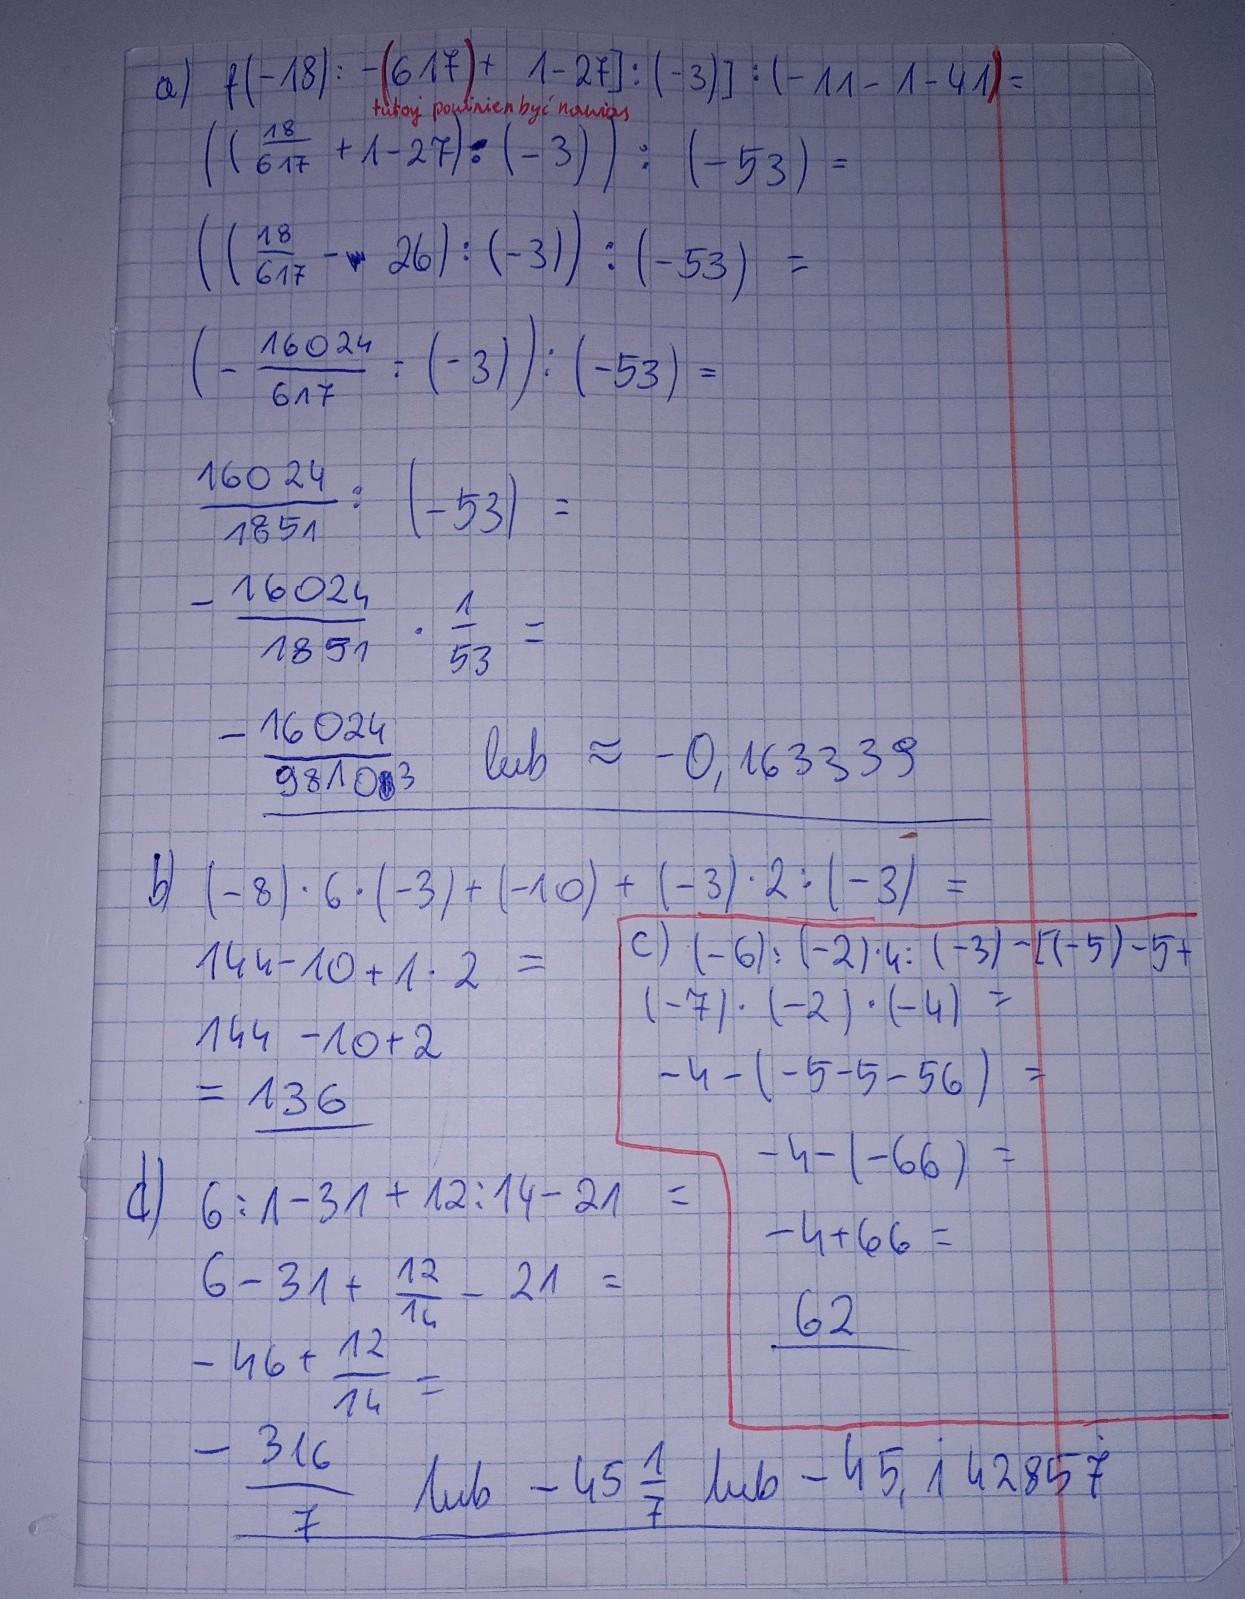 a) f(-18): -(617)+ 1-27]:(-3)]:(-11-1-41)=
tutaj powinien być nawias
((18/617 + 1-27):(-3)) : (-53) =
((18/617 - 26):(-3)) : (-53) =
(- 16024/617 : (-3)) : (-53) =
16024/1851 : (-53) =
- 16024/1851 · 1/53 =
- 16024/98103 lub ≈ -0,163339
b) (-8)·6·(-3)+(-10)+(-3)·2:(-3) =
144-10+1·2 =
144-10+2
= 136
c) (-6):(-2)·4:(-3)-[(-5)-5+
(-7)·(-2)·(-4) =
-4-(-5-5-56) =
-4-(-66) =
-4+66 =
62
d) 6:1-31+12:14-21 =
6-31+ 12/14 - 21 =
-46+ 12/14 =
- 316/7 lub -45 1/7 lub -45,142857